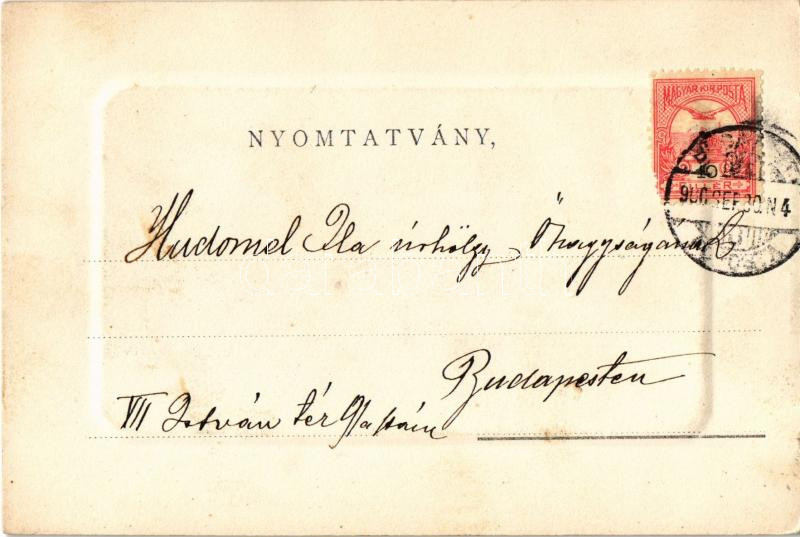 MAGYAR KIR. POSTA
10
FILLÉR
900 SEP 30 N4
NYOMTATVÁNY,
Hudomel Ila úrhölgy Őnagyságának
Budapesten
VII István tér